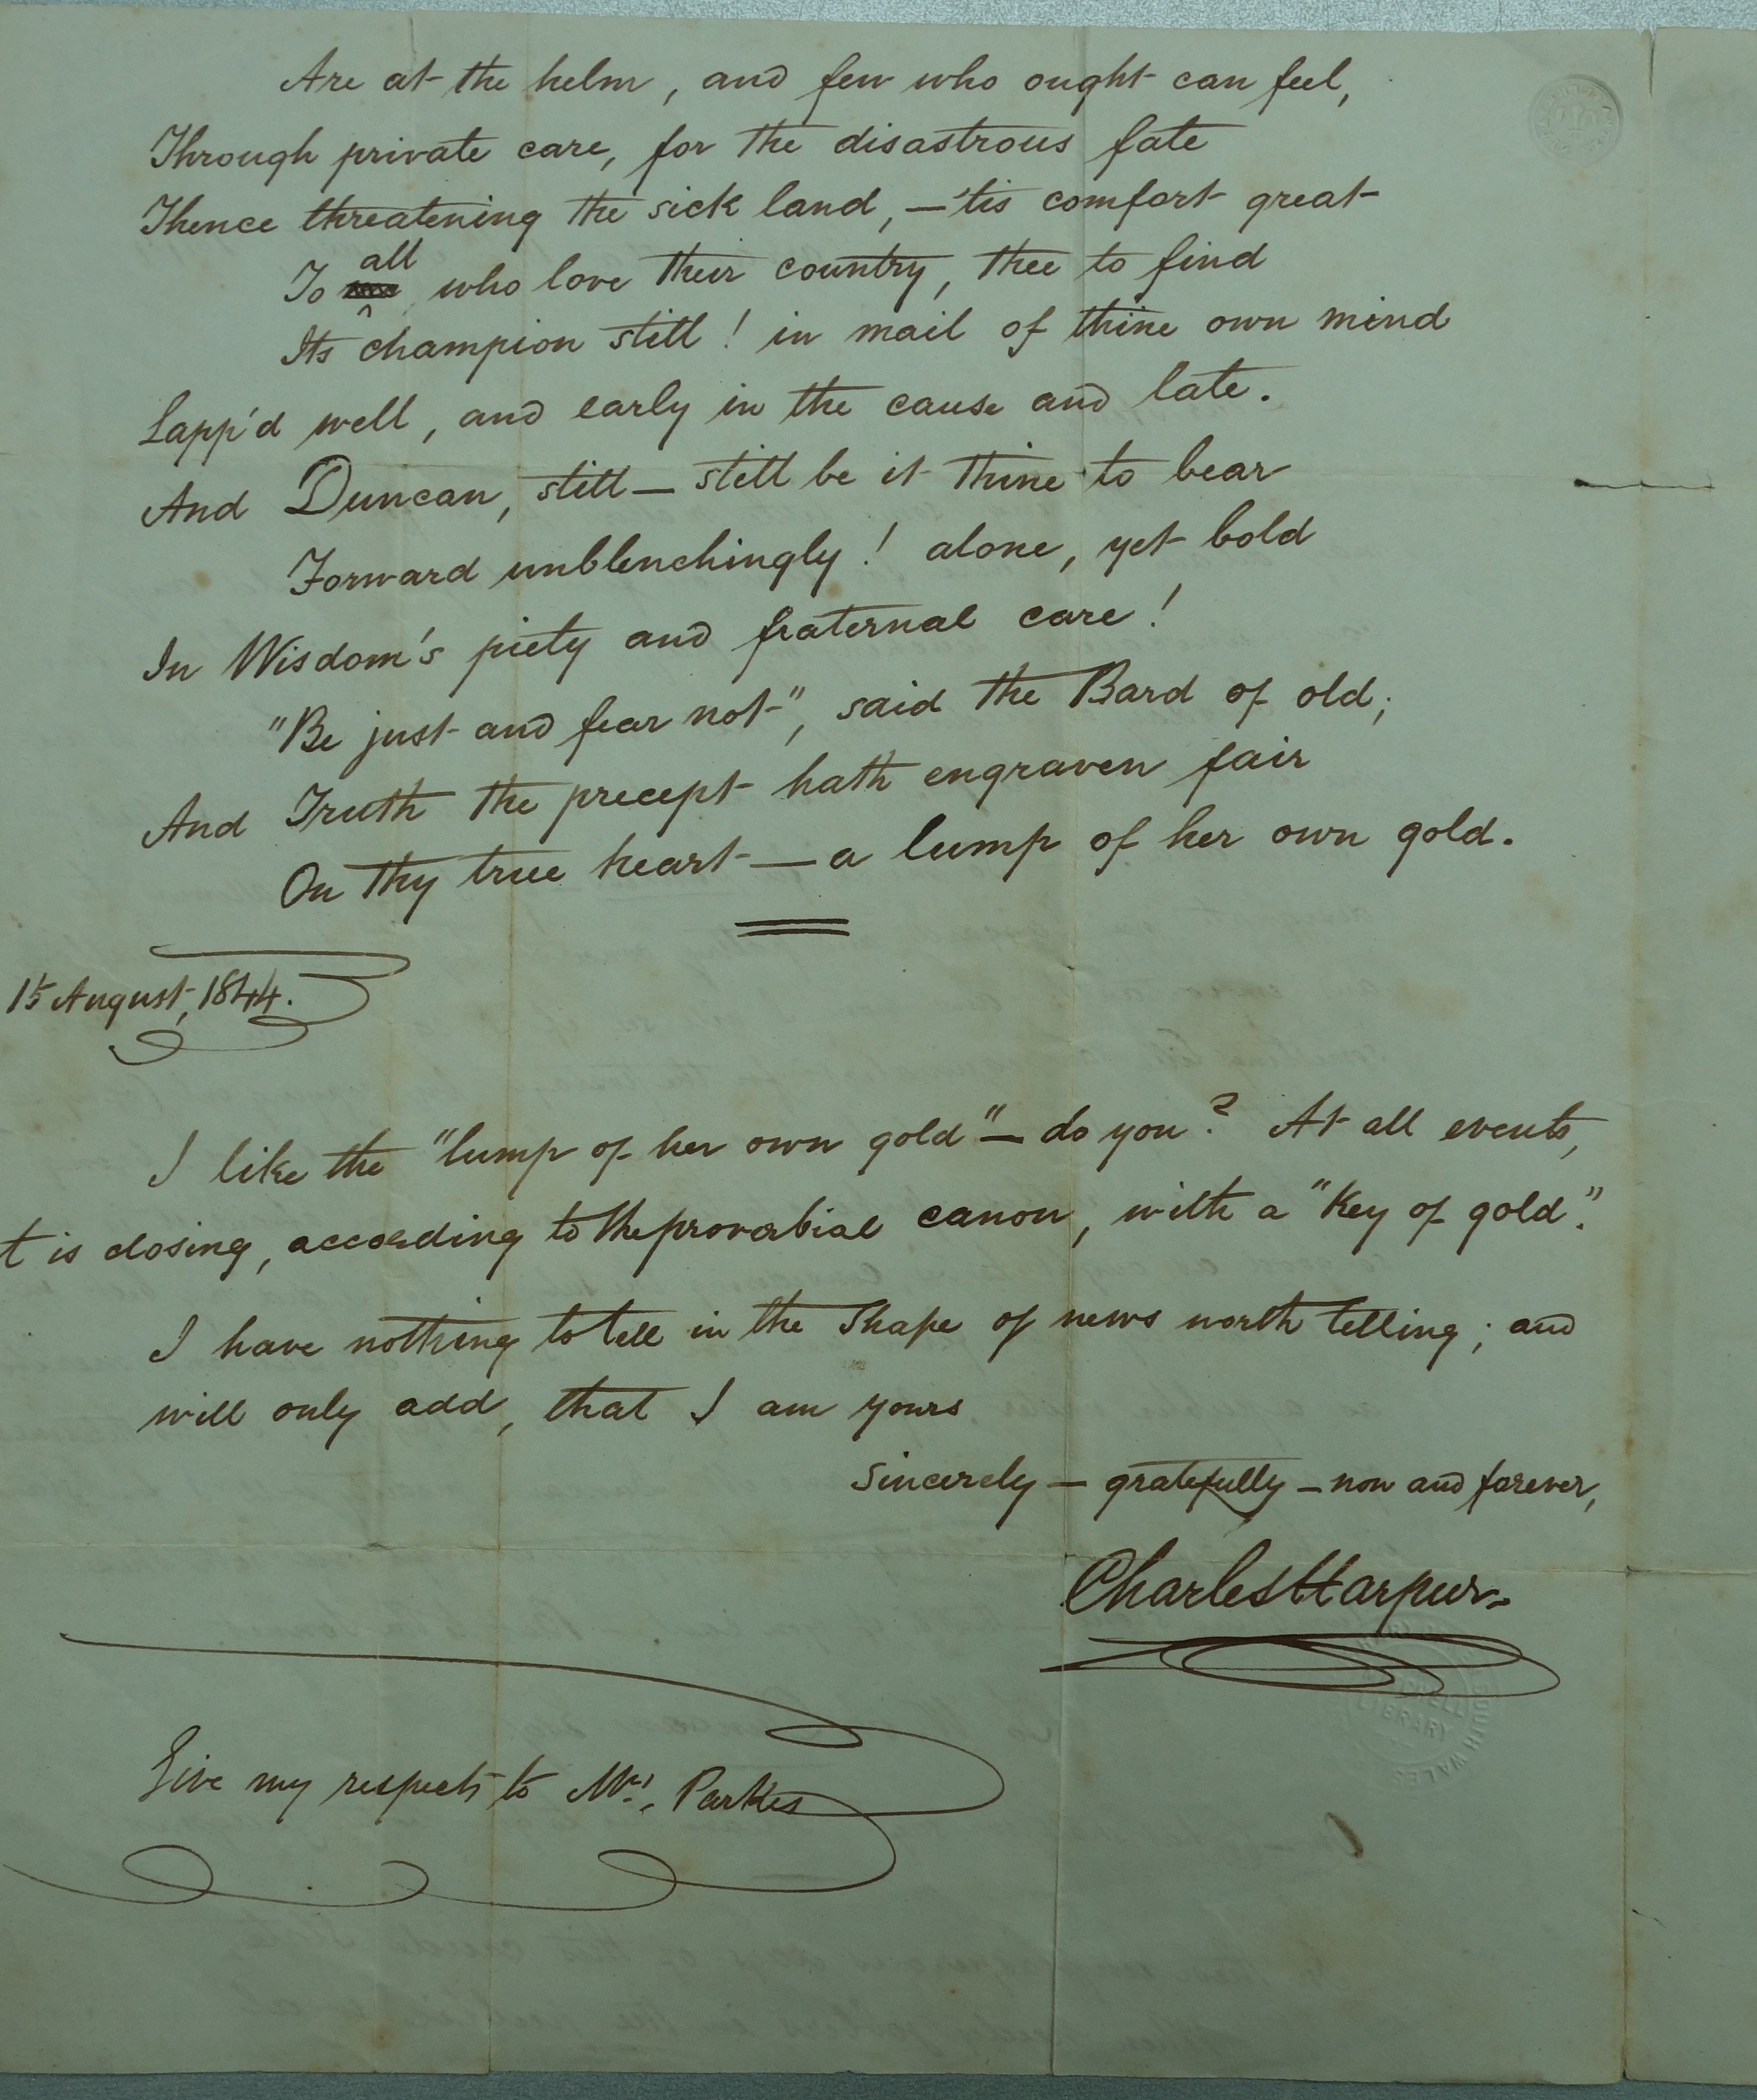 Are at the helm, and few who ought can feel,
Through private care, for the disastrous fate
Thence threatening the sick land, — 'tis comfort great
all
To who love their country, thee to find
Its champion still! in mail of thine own mind
Lapp'd well, and early in the cause and late.
And Duncan, still — still be it thine to bear
Forward unblenchingly! alone, yet bold
In Wisdom's piety and fraternal care!
"Be just and fear not", said the Bard of old;
And Truth the precept hath engraven fair
On thy true heart — a lump of her own gold.
15 August, 1844.
I like the "lump of her own gold" — do you? At all events,
t is closing, according to the proverbial canon, with a "Key of gold".
I have nothing to tell in the shape of news worth telling; and
will only add, that I am yours
Sincerely — gratefully — now and forever,
Charles Harpur.
MITCHELL LIBRARY
SOUTH WALES
Give my respects to Mrs. Parkes